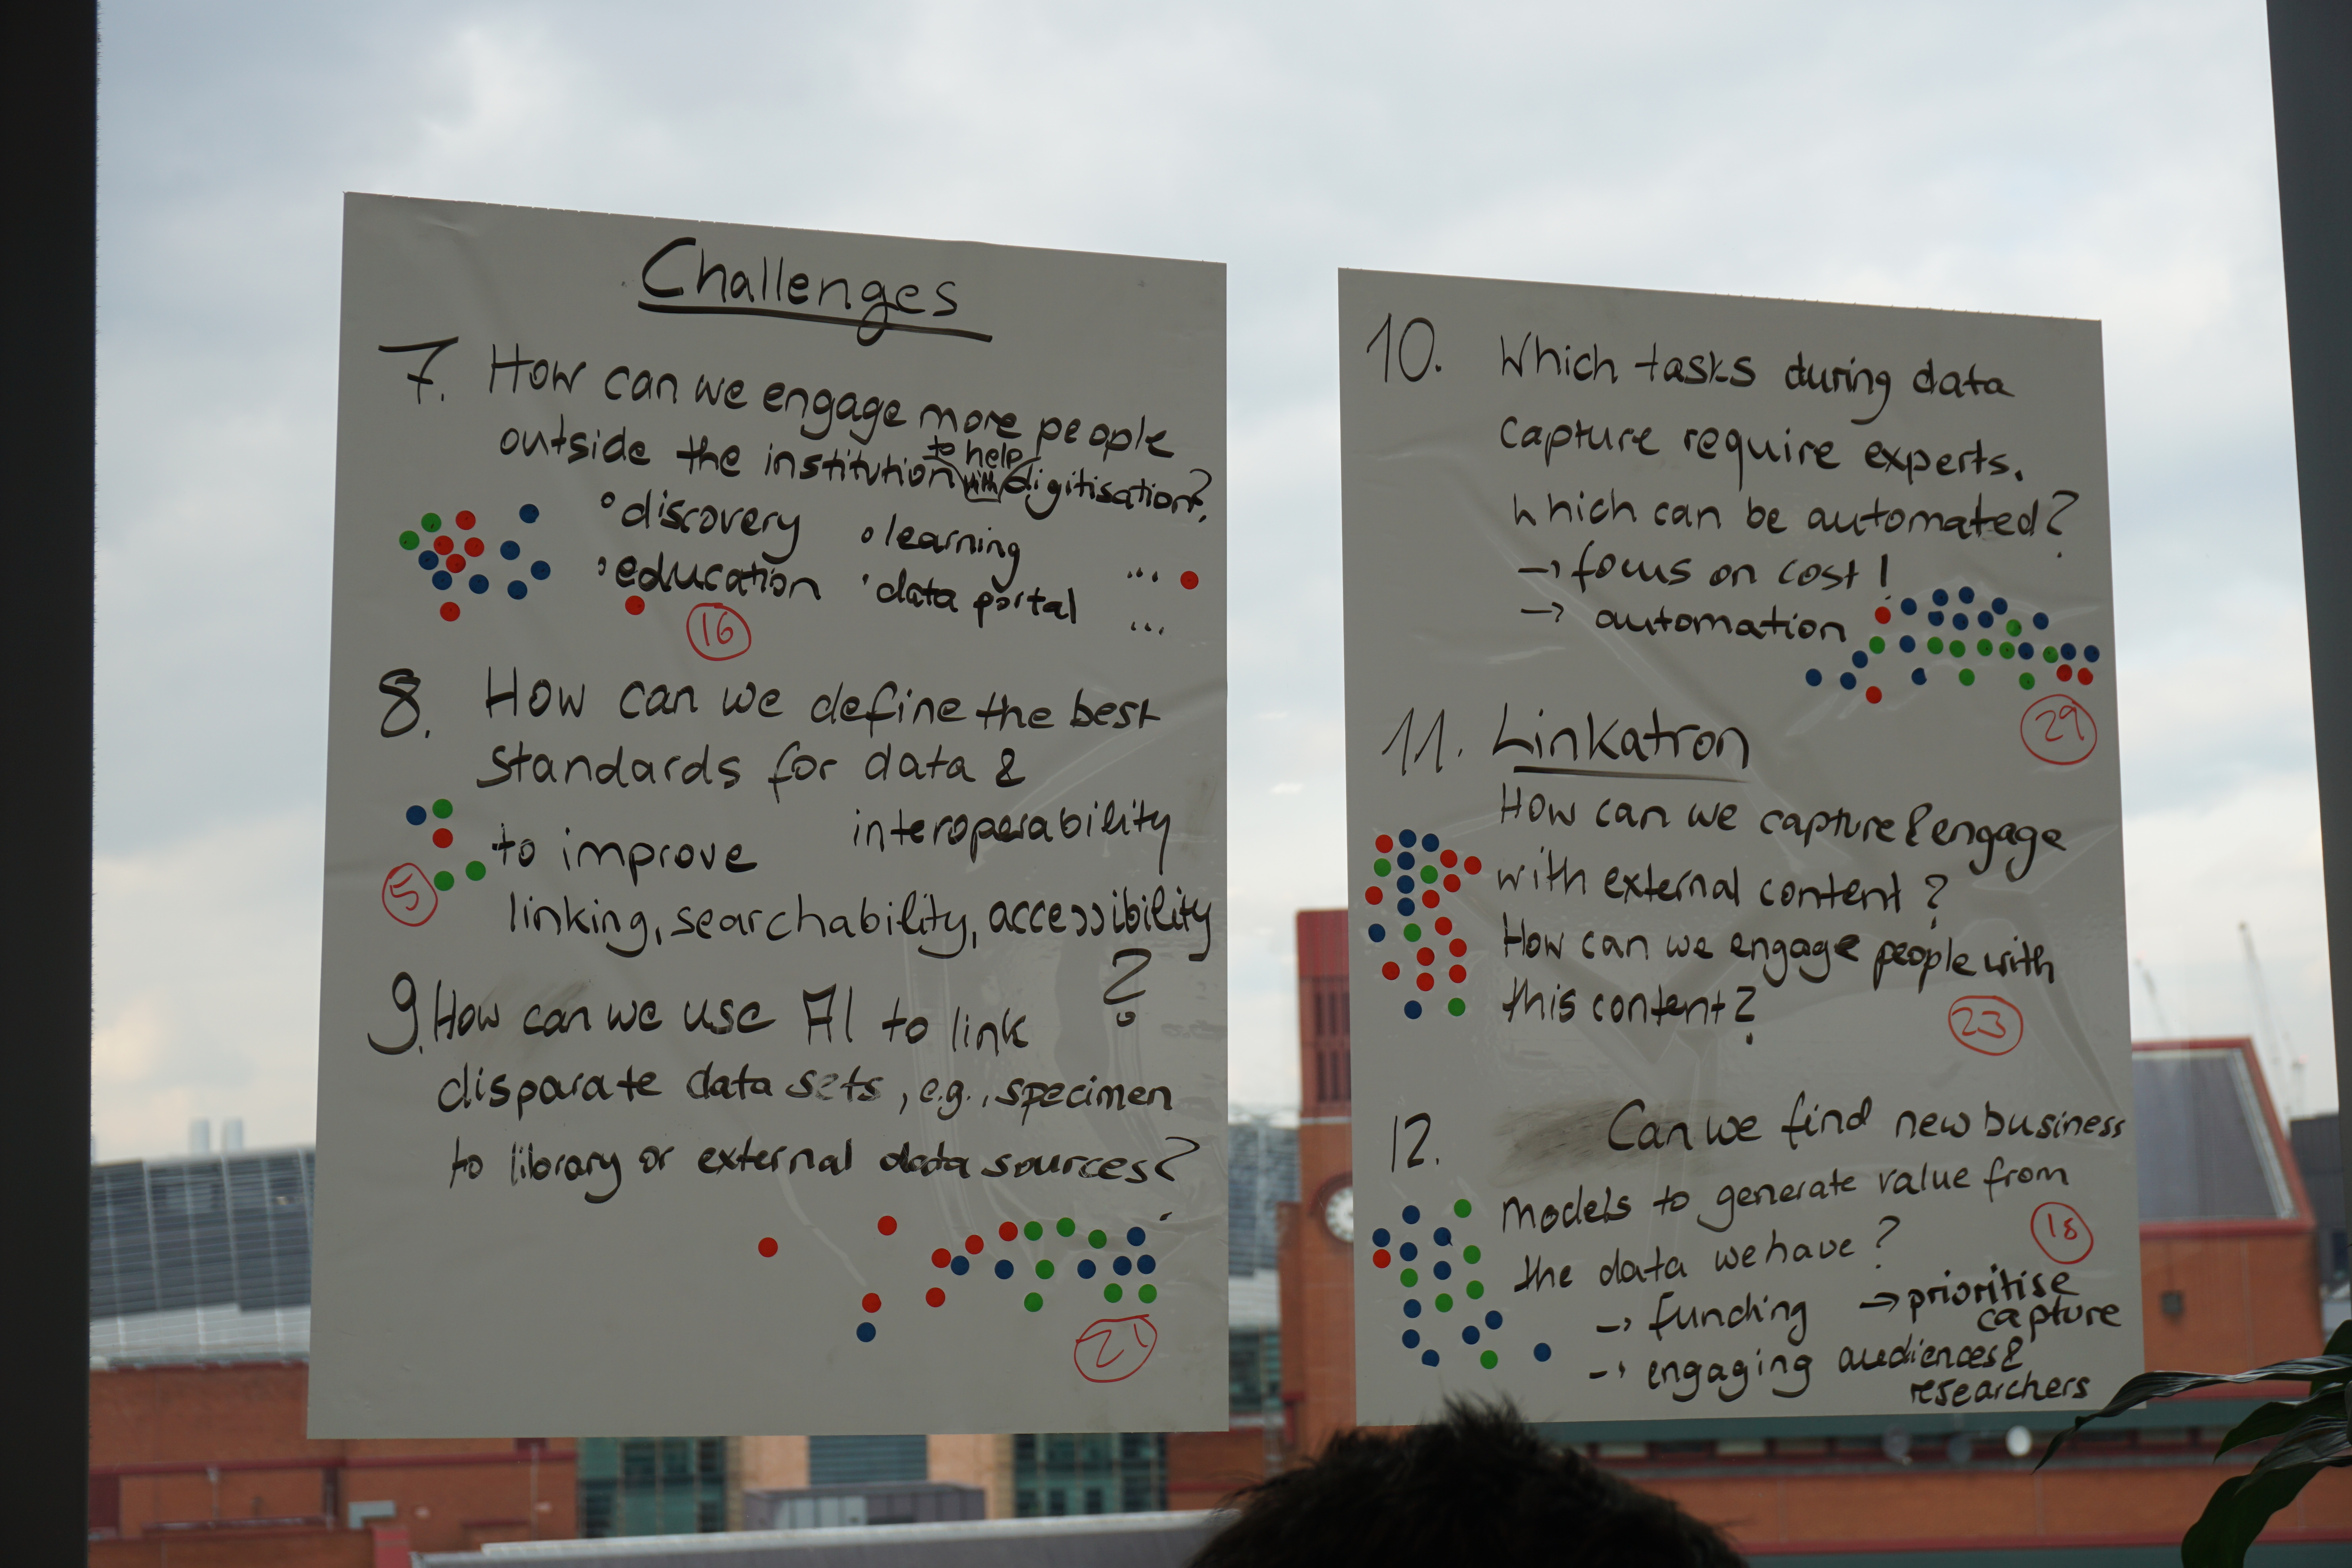 Challenges
7. How can we engage more people
outside the institution to help with digitisation?
° discovery ° learning ...
° education ° data portal ...
16
8. How can we define the best
standards for data &
interoperability
to improve
linking, searchability, accessibility
?
5
9. How can we use AI to link
disparate data sets, e.g., specimen
to library or external data sources?
21
10. Which tasks during data
capture require experts.
Which can be automated?
→ focus on cost!
→ automation
29
11. Linkatron
How can we capture & engage
with external content?
How can we engage people with
this content?
23
12. Can we find new business
models to generate value from
the data we have?
18
→ funding → prioritise
capture
→ engaging audiences &
researchers